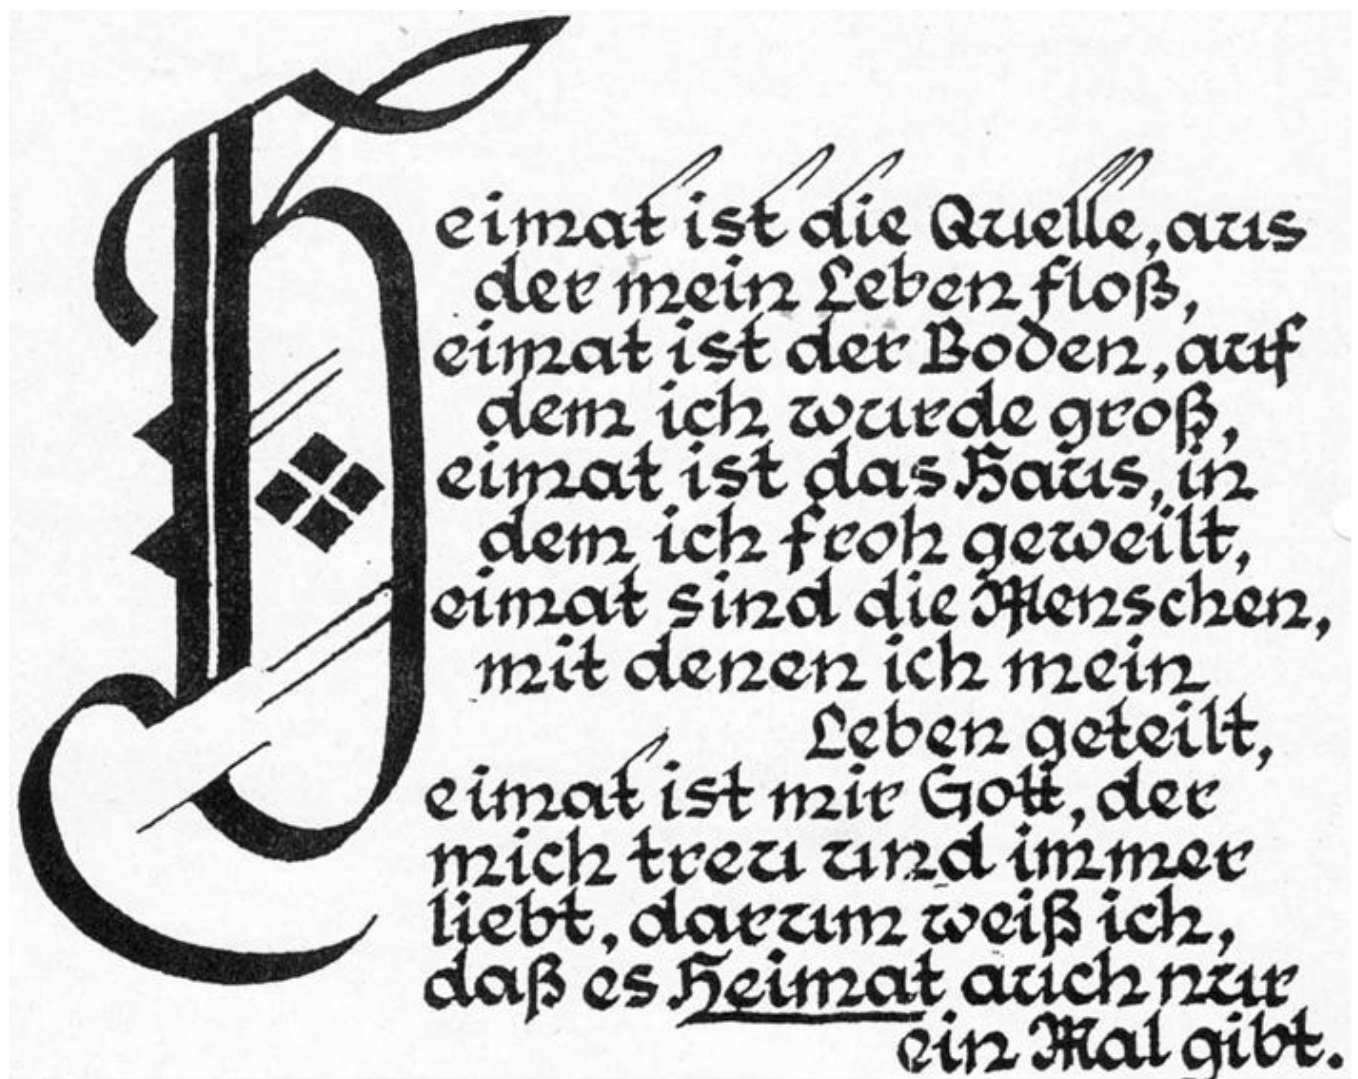 Heimat ist die Quelle, aus
der mein Leben floß,
eimat ist der Boden, auf
dem ich wurde groß,
eimat ist das Haus, in
dem ich froh geweilt,
eimat sind die Menschen,
mit denen ich mein
Leben geteilt,
eimat ist mir Gott, der
mich treu und immer
liebt, darum weiß ich,
daß es Heimat auch nur
ein Mal gibt.